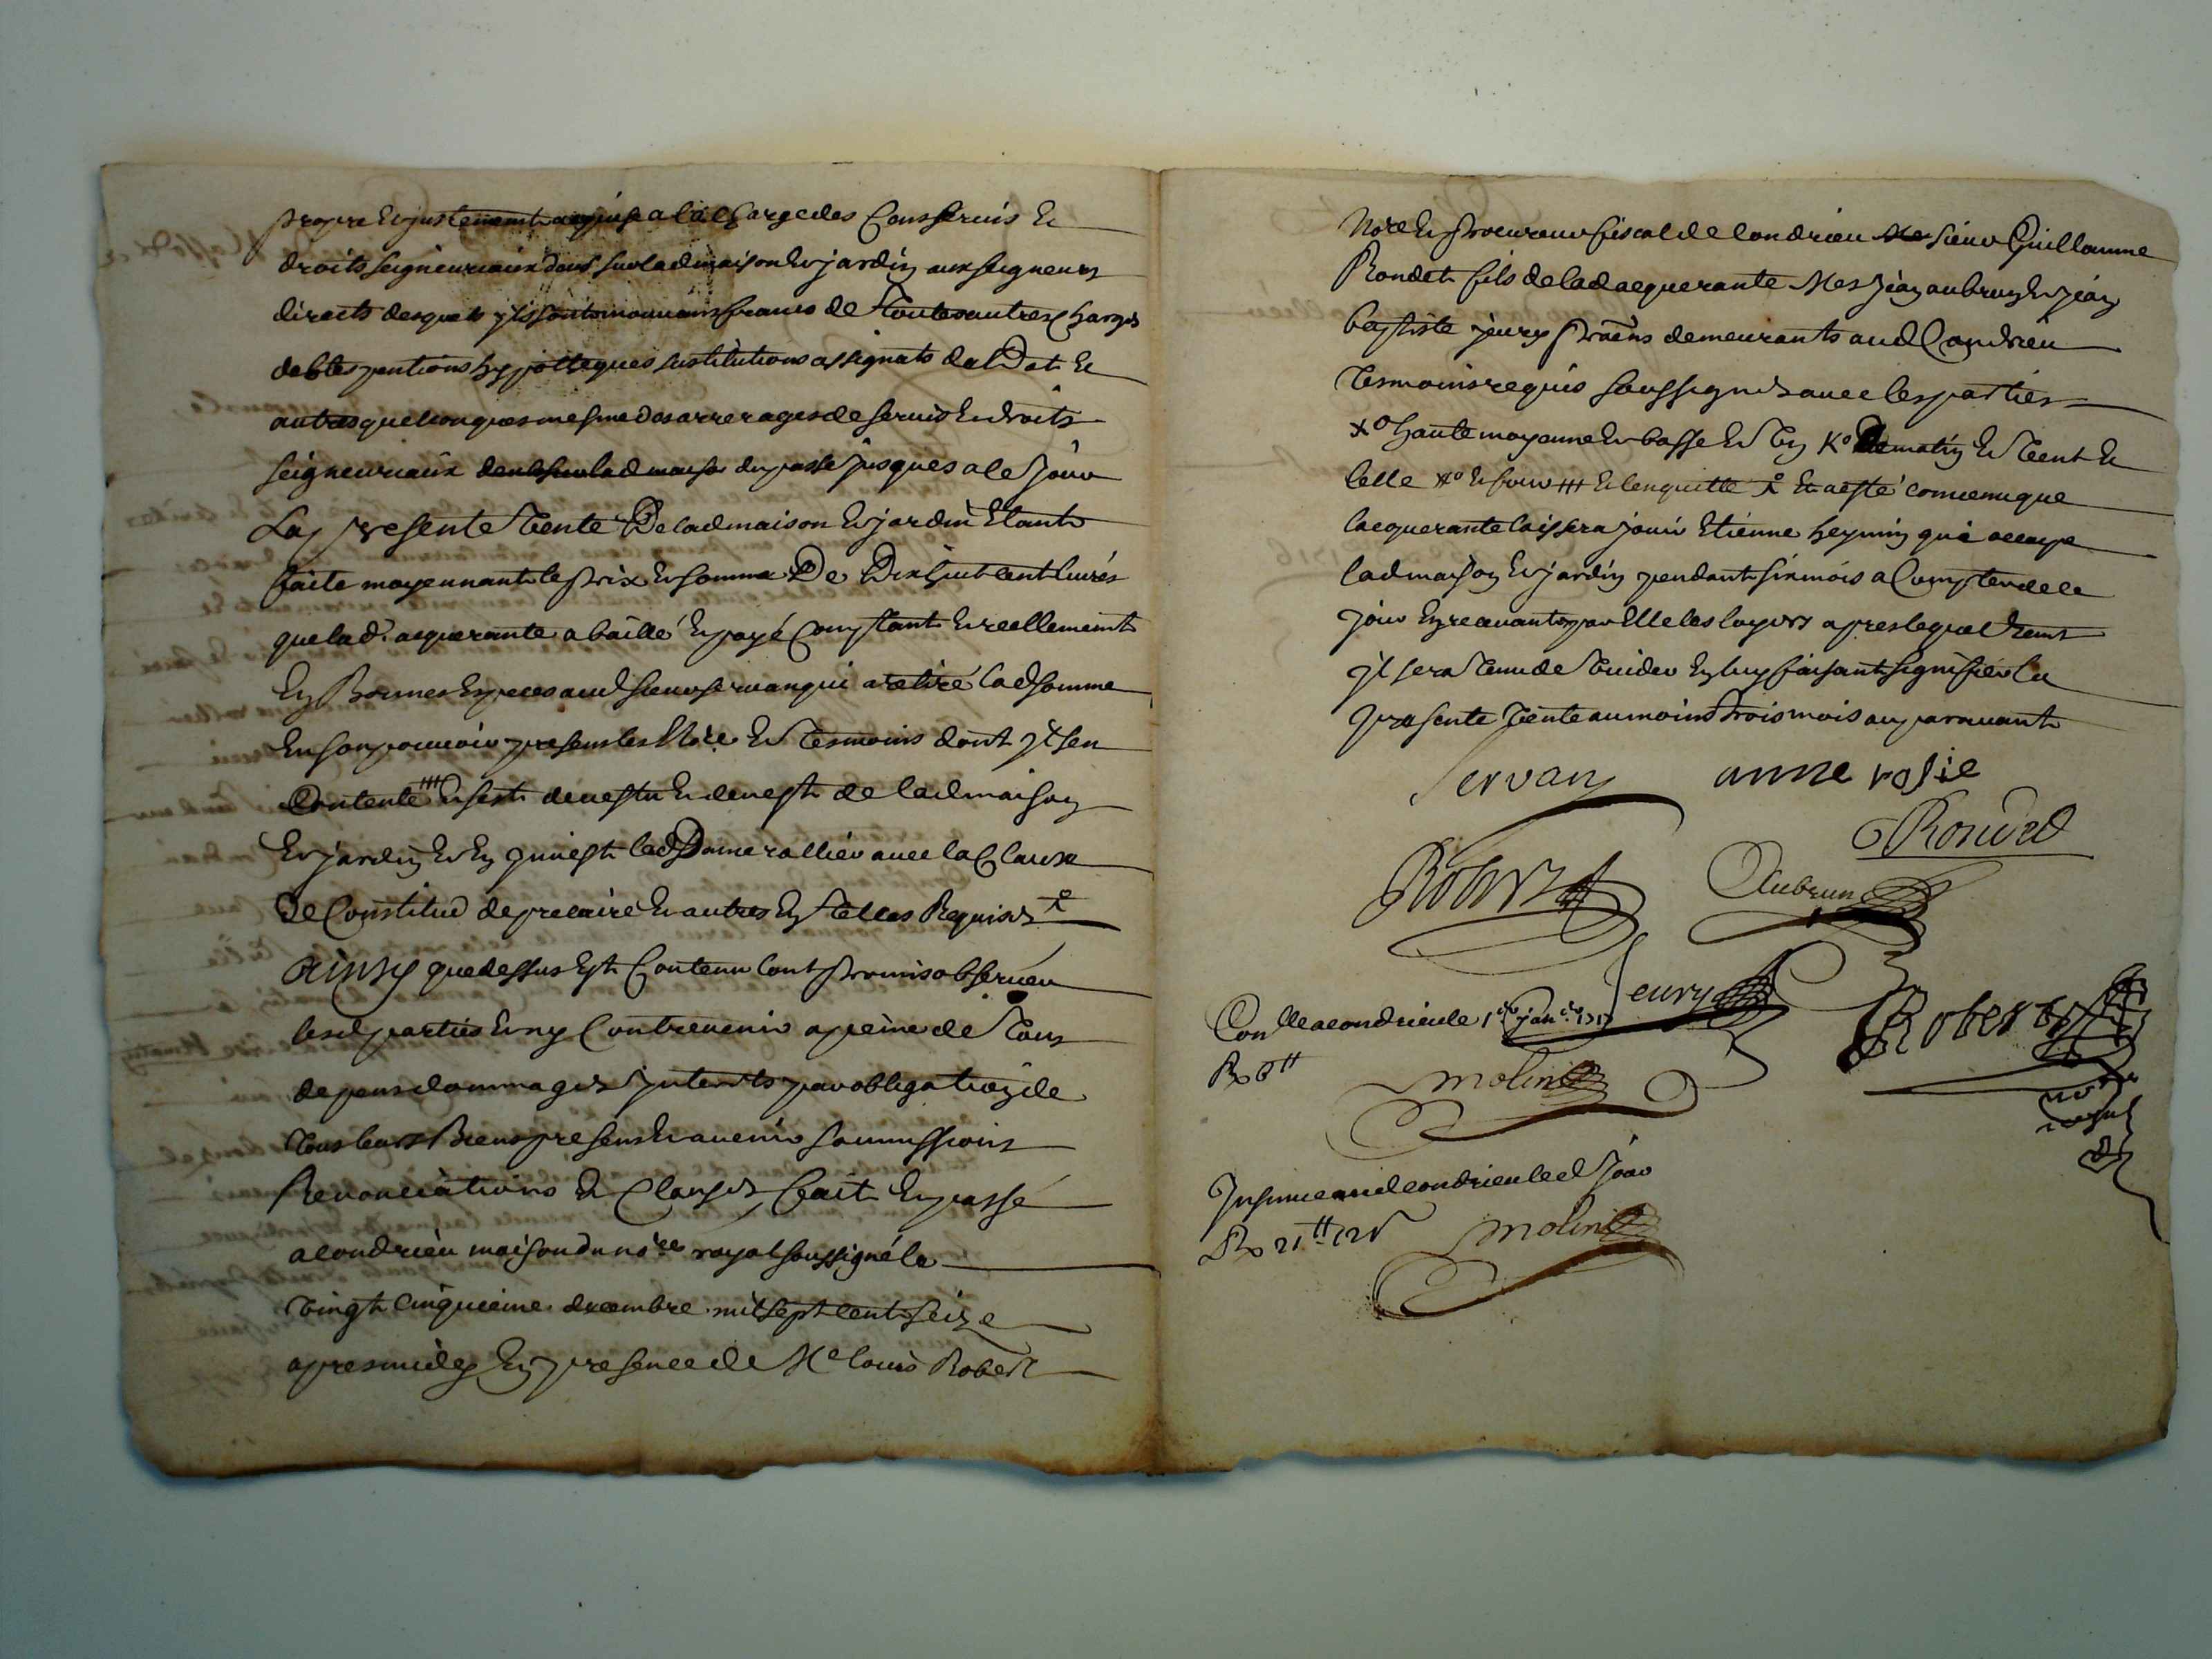 propre et justement acquise a la charge des Cens servis et
droits seigneuriaux deus sur lad maison et jardin aux seigneurs
directs desquels ils sont mouvans francs de touttes autres charges
debtes pentions hyppotteques sustitutions assignats dal Dot et
autres quelconques mesme des arrerages de servis et droits
seigneuriaux deub sur lad maison du passé jusques a ce jour
La presente vente De lad maison et jardin Etant
faite moyennant le prix et somme De Dix huit cent livres
que lad. acquerante a baillé et payé Comptant et reellement
En Bonnes Especes aud sieur servan qui a retiré lad somme
En son pouvoir presens les No.re et tesmoins dont il s'en
Contente //// et s'est devestu et devest de lad maison
et jardin et En invest lad Dame rallier avec la Clause
De Constitut de precaire et autres En telles Requises
Ainsy que dessus Est Contenu l'ont promis observer
lesd parties et n'y Contrevenir a peine de tous
depens dommages interests par obligation de
tous leurs Biens presens et avenir soumissions
Renonciations et Clauses fait et passé
a Condrieu maison du no.re royal soussigné le
vingt Cinquieme decembre mil sept cent seize
apres midy En presence de Me louis Robert
No.re et procureur fiscal de Condrieu sieur Guillaume
Rondet fils de lad acquerante Mes jean aubrun et jean
baptiste jeury pratiens demeurants aud Condrieu
tesmoins requis soussignes avec les parties
haute moyenne et basse et matin et vent et
celle et soir et l'en quitte et a esté convenu que
lacquerante laissera jouir Etienne heymin qui occupe
lad maison et jardin pendant six mois a Compter de ce
jour En recevant par Elle les loyers apres lequel tems
il sera tenu de vuider En luy faisant signifier la
presente vente au moins trois mois auparavant
Servan anne rosie
Rondet
Robert Aubrun
Jeury
Con.lle a condrieu le 1er janer 1717
R 6 tt
Robert
molin
no.re
royal
Insinue aud condrieu led jour
R 21 tt 12 s
molin